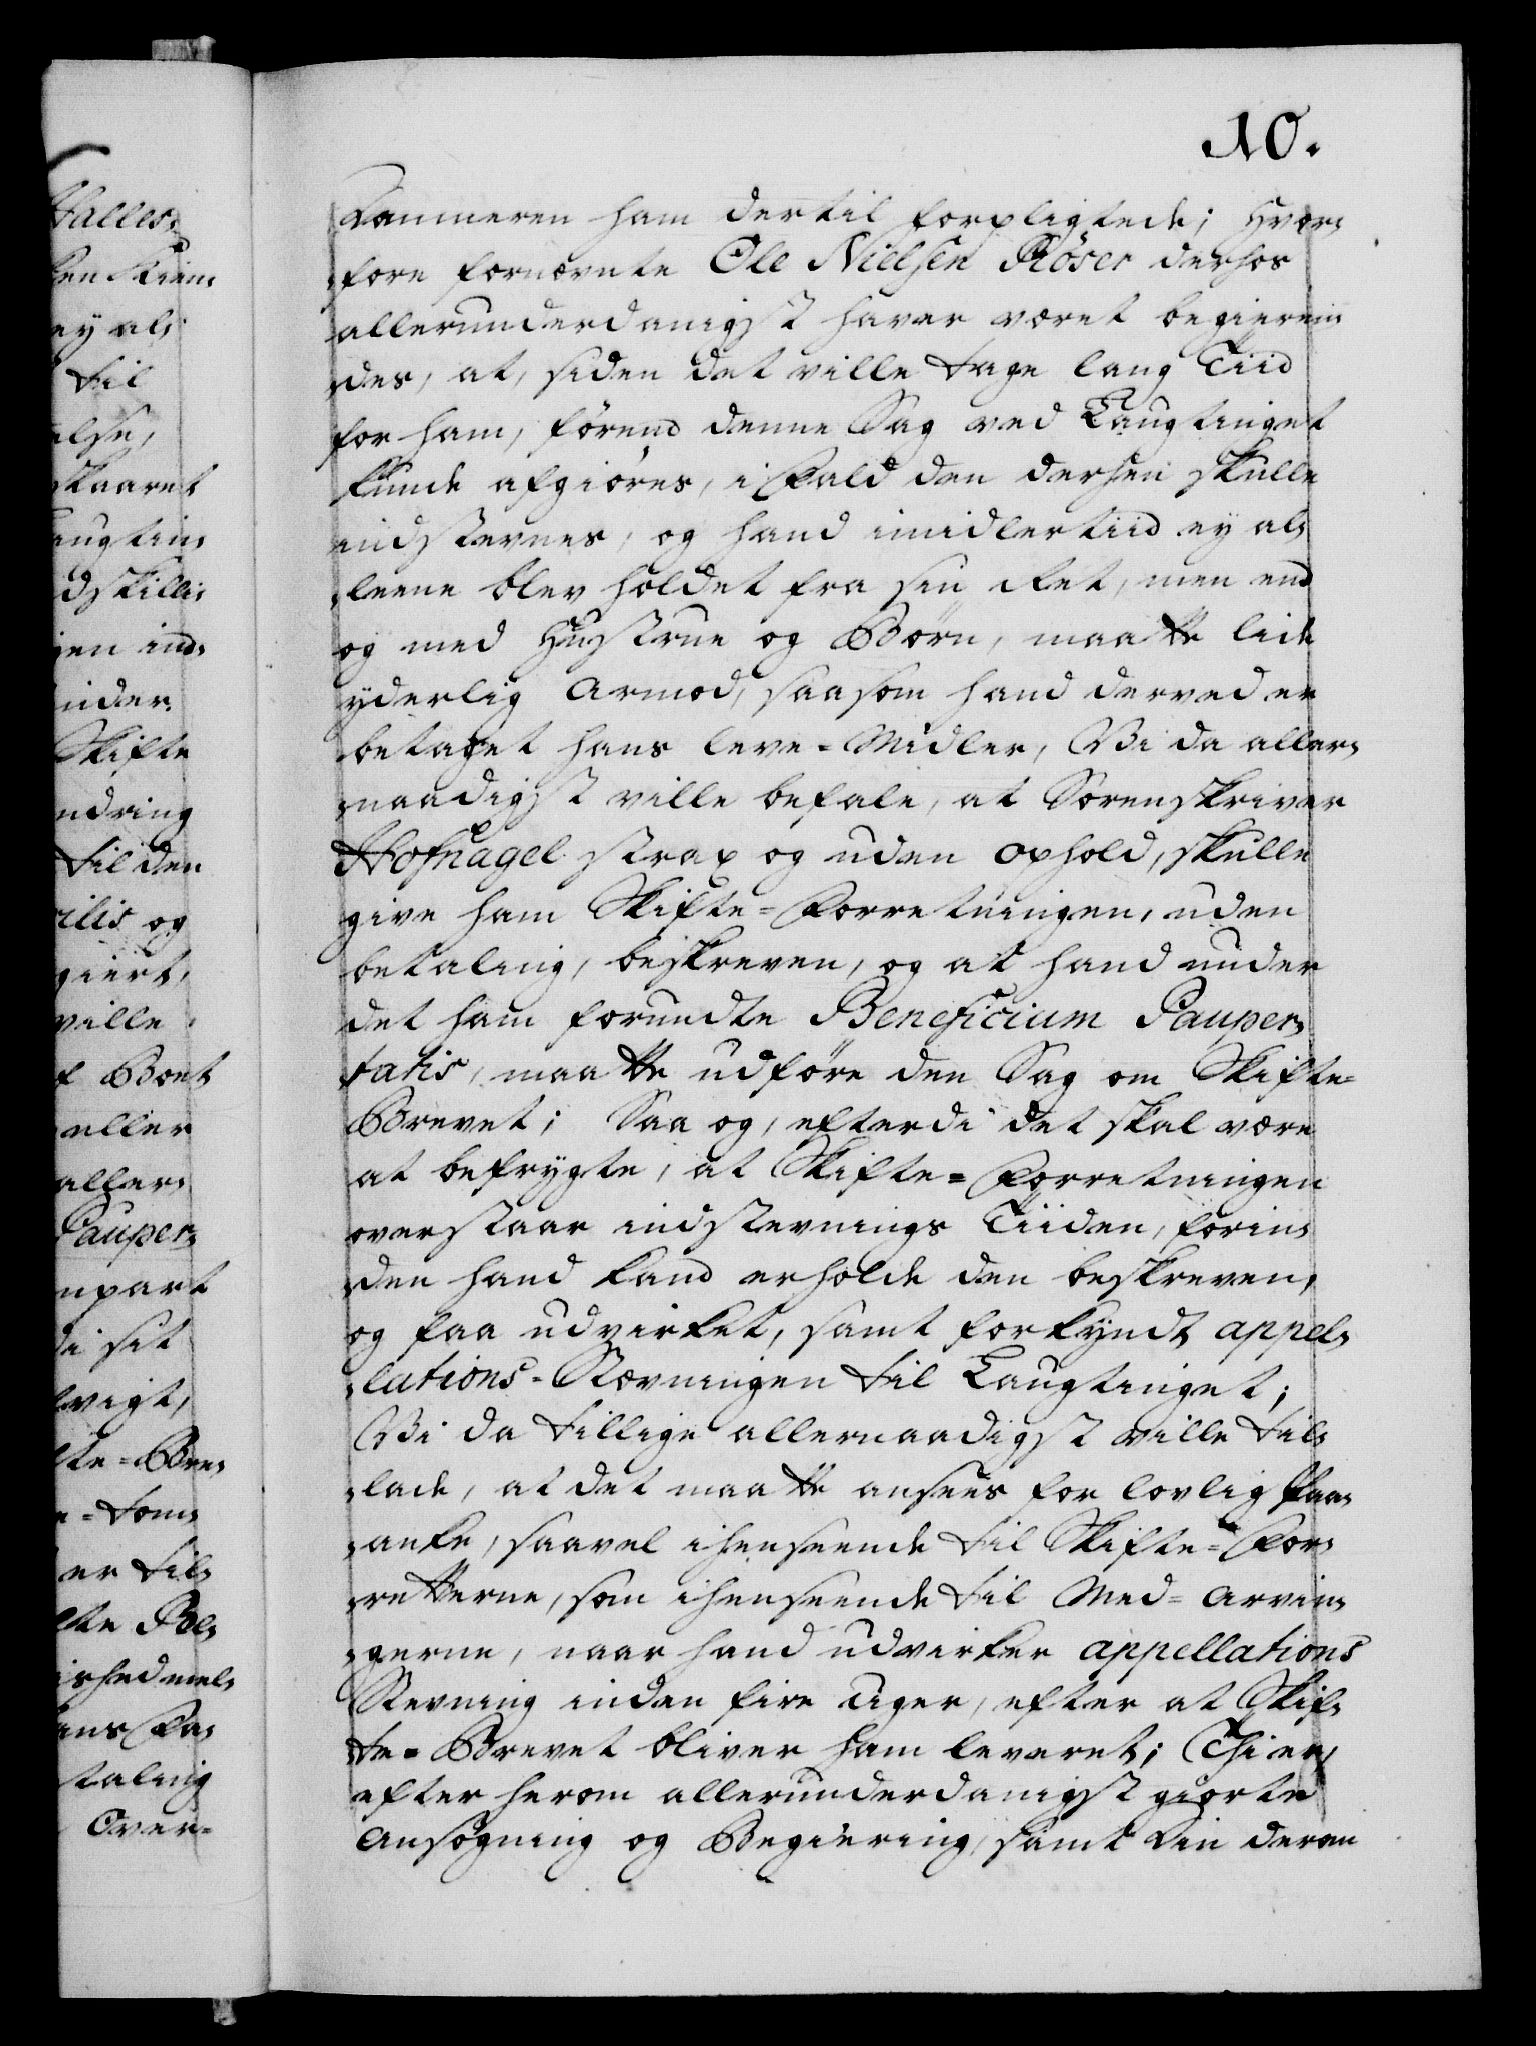 10.
Kammeren ham dertil forpligtede; hvor-
fore fornævnte Ole Nielsen Röser derhos
allerunderdanigst haver været begieren-
des, at, siden det ville tage lang Tiid
for ham, förend denne Sag ved Laugtinget
kunde afgiöres, i fald den derhen skulle
indstevnes, og hand imidlertiid ey al-
leene blev holdet fra sin Ret, men end
og med Hustrue og Börn, maatte lide
yderlig Armod, saasom hand derved er
betaget hans leve-Midler, Vi da aller-
naadigst ville befale, at Sorenskriver
Hofnagel strax og uden ophold, skulle
give ham Skifte-Forretningen, uden
betaling, beskreven, og at hand under
det ham forundte Beneficium Pauper-
tatis, maatte udföre den Sag om Skifte-
Brevet; Saa og, efterdi det skal være
at befrygte, at Skifte-Forretningen
overstaar indstevnings Tiiden, forin-
den hand kand erholde den beskreven,
og faa udvirket, samt forkyndt appel-
lations-Stævningen til Laugtinget;
Vi da tillige allernaadigst ville til-
lade, at det maatte ansees for lovlig paa-
anke, saavel ihenseende til Skifte-For-
retterne, som ihenseende til Med-Arvin-
gerne, naar hand udvirker appellations
Stevning inden fire Uger, efter at Skif-
te-Brevet bliver ham leveret; Thi er,
efter herom allerunderdanigst giorte
Ansögning og Begiering, samt din derom